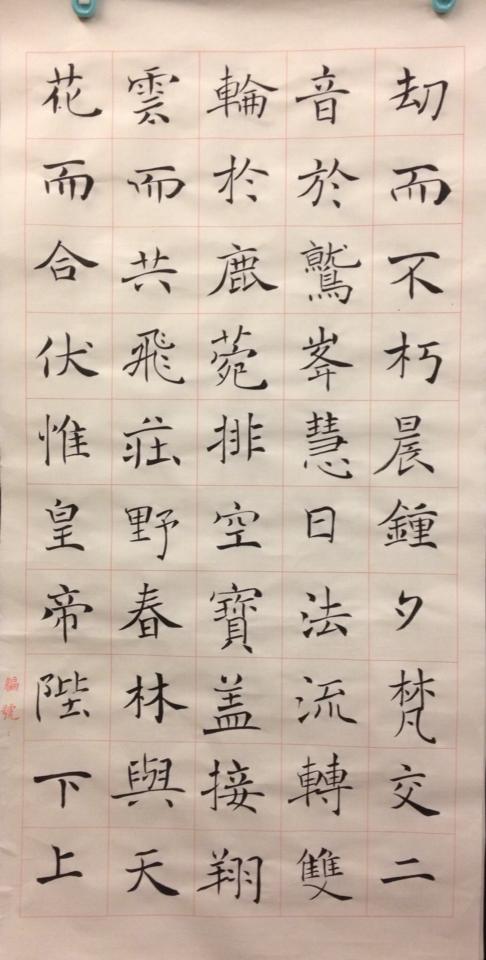 劫而不朽晨鍾夕梵交二
音於鷲峯慧日法流轉雙
輪於鹿菀排空寶盖接翔
雲而共飛莊野春林與天
花而合伏惟皇帝陛下上
編號